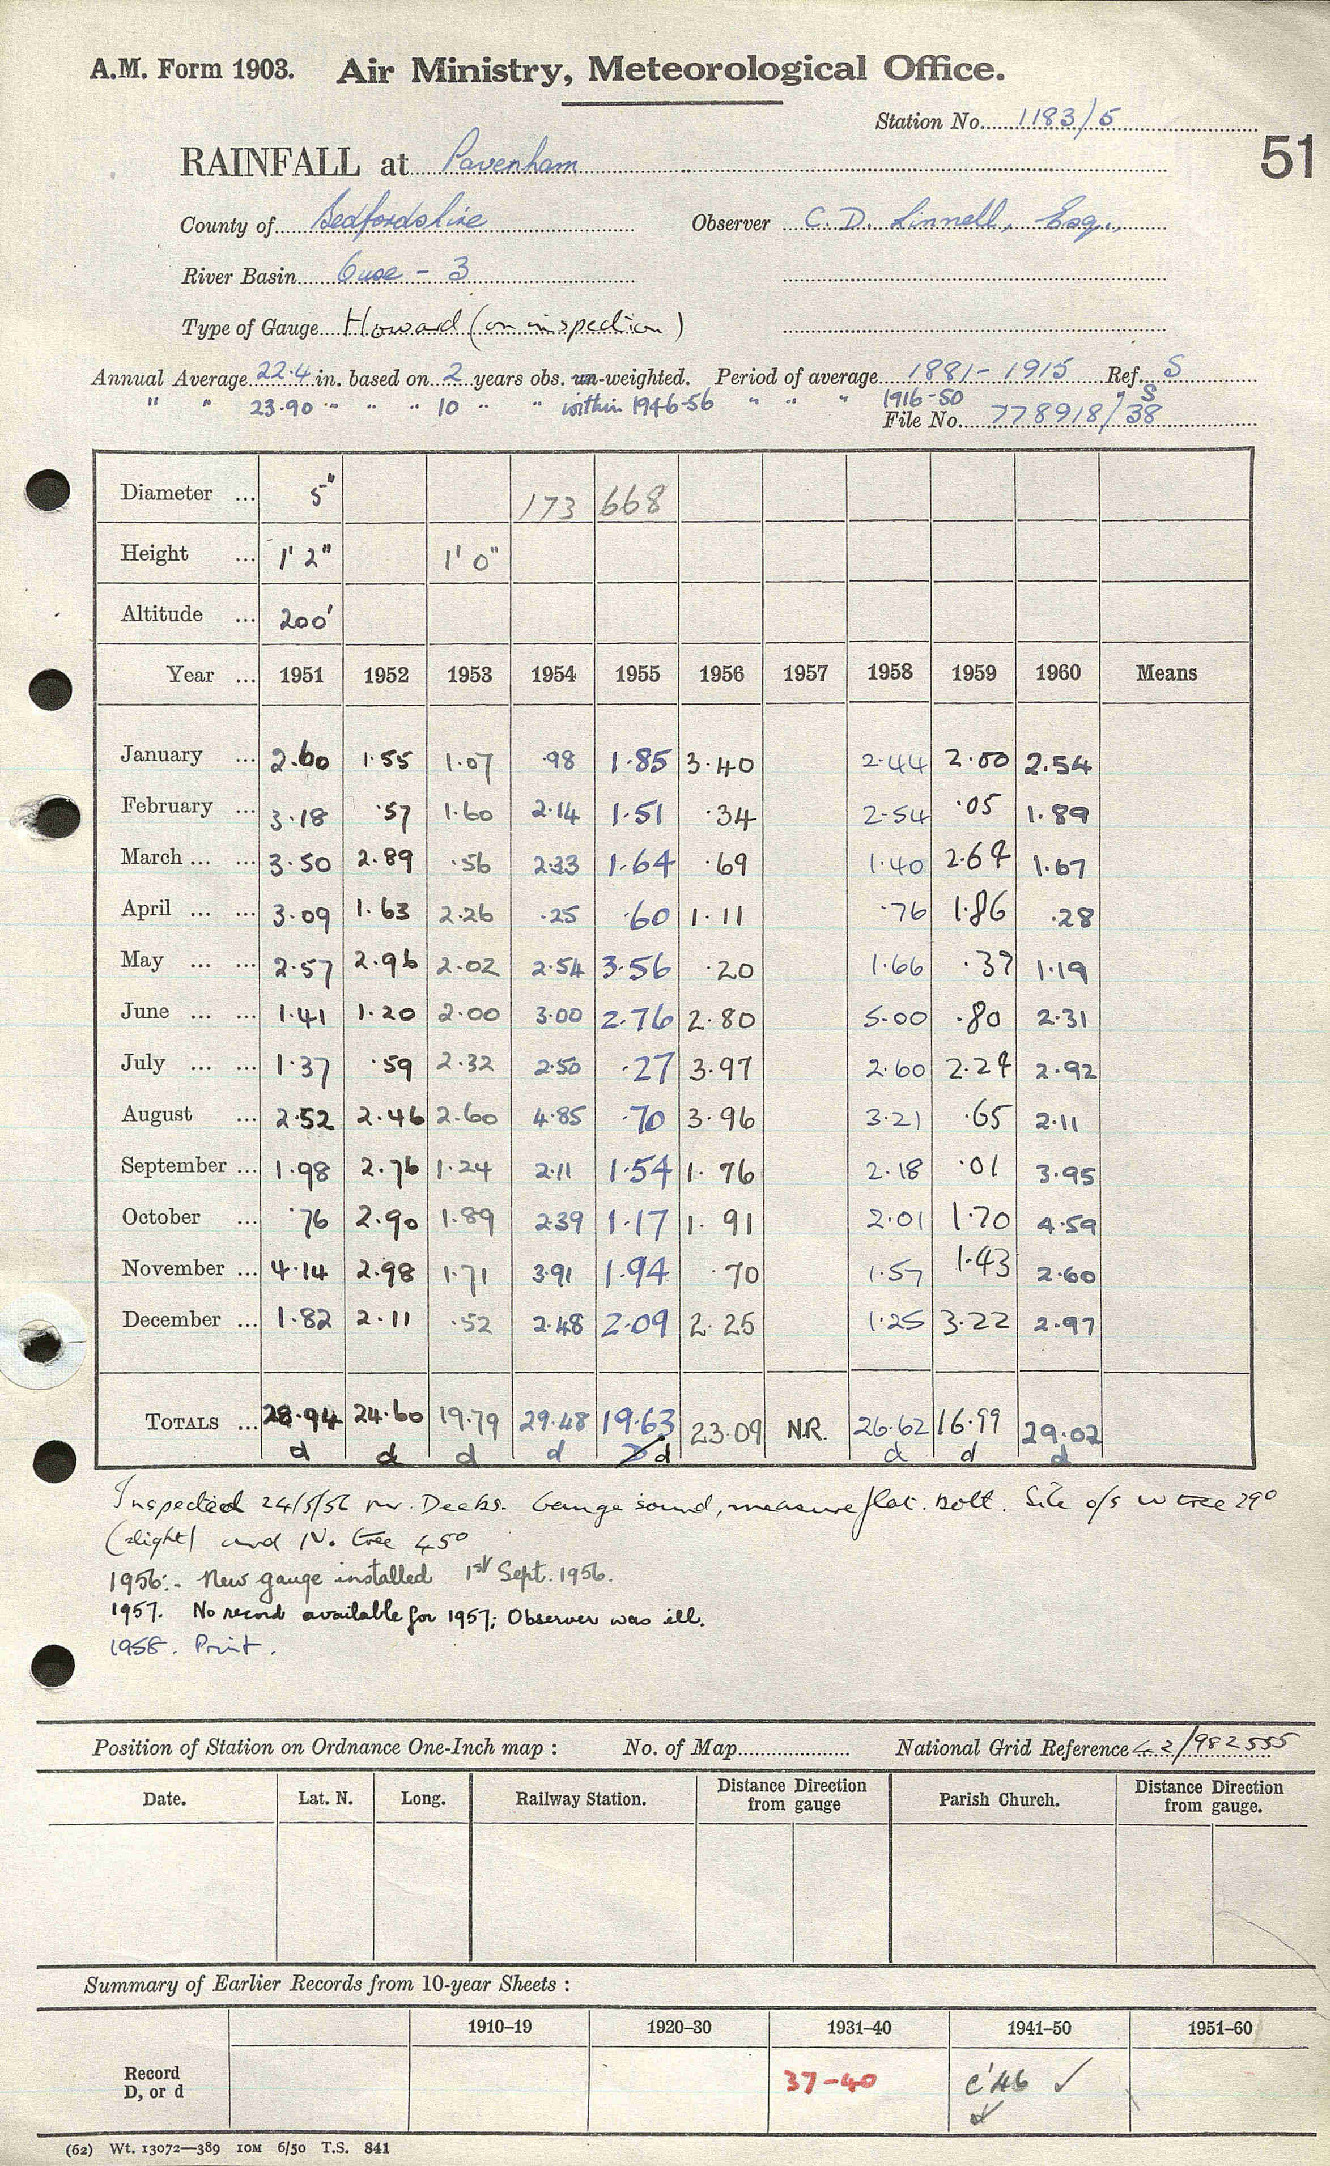 A.M. Form 1903. Air Ministry, Meteorological Office.
Station No. 1183/5
51
RAINFALL at Pavenham
County of Bedfordshire Observer C. D. Linnell, Esq.,
River Basin Ouse - 3
Type of Gauge Howard (on inspection)
Annual Average 22.4 in. based on 2 years obs. un-weighted. Period of average 1881-1915 Ref. S
" " 23.90 " " " 10 " " within 1946-56 " " " 1916-50 " S
File No. 778918/38
Diameter ... 5" 173 668
Height ... 1' 2" 1' 0"
Altitude ... 200'
Year ... 1951 1952 1953 1954 1955 1956 1957 1958 1959 1960 Means
January ... 2.60 1.55 1.07 .98 1.85 3.40 2.44 2.00 2.54
February ... 3.18 .57 1.60 2.14 1.51 .34 2.54 .05 1.89
March ... ... 3.50 2.89 .56 2.33 1.64 .69 1.40 2.64 1.67
April ... ... 3.09 1.63 2.26 .25 .60 1.11 .76 1.86 .28
May ... ... 2.57 2.96 2.02 2.54 3.56 .20 1.66 .37 1.19
June ... ... 1.41 1.20 2.00 3.00 2.76 2.80 5.00 .80 2.31
July ... ... 1.37 .59 2.32 2.50 .27 3.97 2.60 2.24 2.92
August ... 2.52 2.46 2.60 4.85 .70 3.96 3.21 .65 2.11
September ... 1.98 2.76 1.24 2.11 1.54 1.76 2.18 .01 3.95
October ... .76 2.90 1.89 2.39 1.17 1.91 2.01 1.70 4.59
November ... 4.14 2.98 1.71 3.91 1.94 .70 1.57 1.43 2.60
December ... 1.82 2.11 .52 2.48 2.09 2.25 1.25 3.22 2.97
TOTALS ... 28.94 24.60 19.79 29.48 19.63 23.09 N.R. 26.62 16.99 29.02
d d d d d d d d
Inspected 24/5/56 Mr. Deeks. Gauge sound, measure flat bott. Site o/s W tree 29°
(slight) and N. tree 45°
1956:- New gauge installed 1st Sept. 1956.
1957. No record available for 1957; Observer was ill.
1958. Print.
Position of Station on Ordnance One-Inch map : No. of Map National Grid Reference 42/982555
Date. Lat. N. Long. Railway Station. Distance Direction from gauge Parish Church. Distance Direction from gauge.
Summary of Earlier Records from 10-year Sheets :
1910-19 1920-30 1931-40 1941-50 1951-60
Record
D, or d 37-40 c'46 ✓
(62) Wt. 13072—389 10M 6/50 T.S. 841